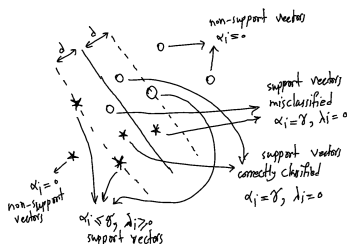 non-support vectors
αᵢ=0
d
d
support vectors
misclassified
αᵢ=γ, λᵢ=0
support vectors
correctly classified
αᵢ=γ, λᵢ=0
αᵢ=0
non-support
vectors
αᵢ≤γ, λᵢ≥0
support vectors